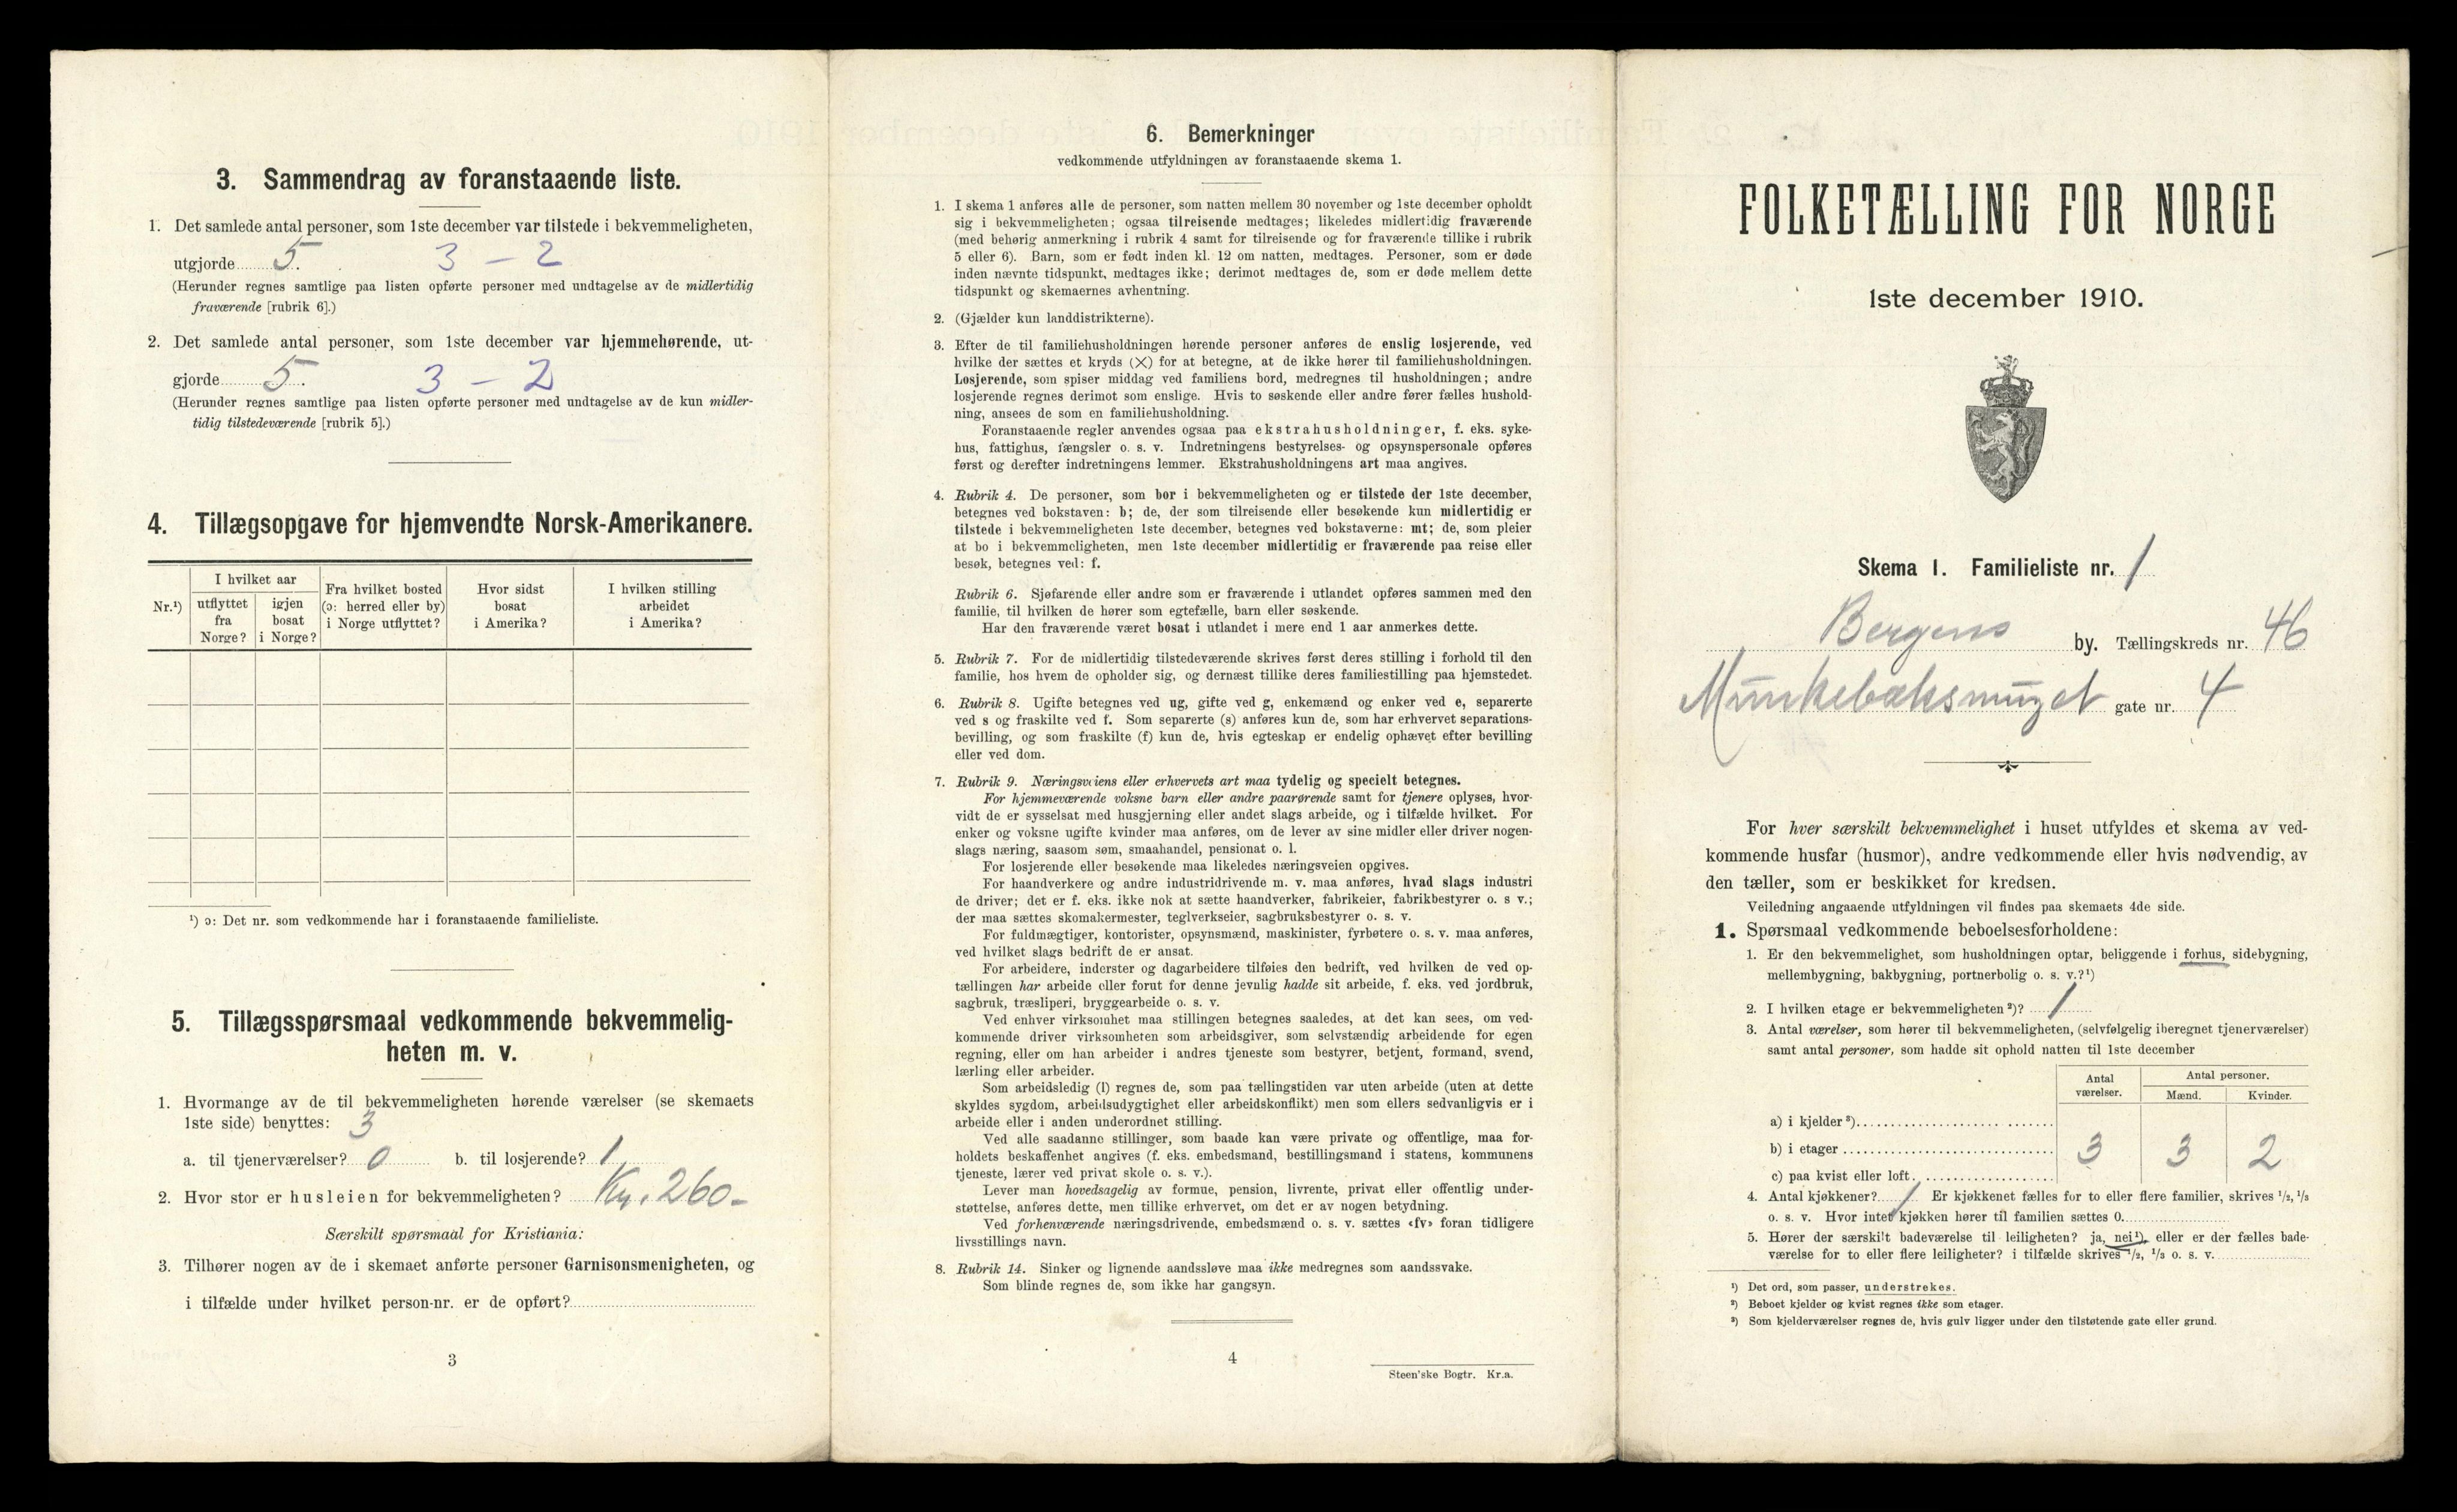 3. Sammendrag av foranstaaende liste.
1. Det samlede antal personer, som 1ste december var tilstede i bekvemmeligheten,
utgjorde 5. 3 – 2
(Herunder regnes samtlige paa listen opførte personer med undtagelse av de midlertidig
fraværende [rubrik 6].)
2. Det samlede antal personer, som 1ste december var hjemmehørende, ut-
gjorde 5. 3 – 2
(Herunder regnes samtlige paa listen opførte personer med undtagelse av de kun midler-
tidig tilstedeværende [rubrik 5].)
4. Tillægsopgave for hjemvendte Norsk-Amerikanere.
Nr.¹)
I hvilket aar
utflyttet
fra
Norge?
igjen
bosat
i Norge?
Fra hvilket bosted
(ɔ: herred eller by)
i Norge utflyttet?
Hvor sidst
bosat
i Amerika?
I hvilken stilling
arbeidet
i Amerika?
¹) ɔ: Det nr. som vedkommende har i foranstaaende familieliste.
5. Tillægsspørsmaal vedkommende bekvemmelig-
heten m. v.
1. Hvormange av de til bekvemmeligheten hørende værelser (se skemaets
1ste side) benyttes: 3
a. til tjenerværelser? 0 b. til losjerende? 1
2. Hvor stor er husleien for bekvemmeligheten? Kr. 260-
Særskilt spørsmaal for Kristiania:
3. Tilhører nogen av de i skemaet anførte personer Garnisonsmenigheten, og
i tilfælde under hvilket person-nr. er de opført?
3
6. Bemerkninger
vedkommende utfyldningen av foranstaaende skema 1.
1. I skema 1 anføres alle de personer, som natten mellem 30 november og 1ste december opholdt
sig i bekvemmeligheten; ogsaa tilreisende medtages; likeledes midlertidig fraværende
(med behørig anmerkning i rubrik 4 samt for tilreisende og for fraværende tillike i rubrik
5 eller 6). Barn, som er født inden kl. 12 om natten, medtages. Personer, som er døde
inden nævnte tidspunkt, medtages ikke; derimot medtages de, som er døde mellem dette
tidspunkt og skemaernes avhentning.
2. (Gjælder kun landdistrikterne).
3. Efter de til familiehusholdningen hørende personer anføres de enslig losjerende, ved
hvilke der sættes et kryds (×) for at betegne, at de ikke hører til familiehusholdningen.
Losjerende, som spiser middag ved familiens bord, medregnes til husholdningen; andre
losjerende regnes derimot som enslige. Hvis to søskende eller andre fører fælles hushold-
ning, ansees de som en familiehusholdning.
Foranstaaende regler anvendes ogsaa paa ekstrahusholdninger, f. eks. syke-
hus, fattighus, fængsler o. s. v. Indretningens bestyrelses- og opsynspersonale opføres
først og derefter indretningens lemmer. Ekstrahusholdningens art maa angives.
4. Rubrik 4. De personer, som bor i bekvemmeligheten og er tilstede der 1ste december,
betegnes ved bokstaven: b; de, der som tilreisende eller besøkende kun midlertidig er
tilstede i bekvemmeligheten 1ste december, betegnes ved bokstaverne: mt; de, som pleier
at bo i bekvemmeligheten, men 1ste december midlertidig er fraværende paa reise eller
besøk, betegnes ved: f.
Rubrik 6. Sjøfarende eller andre som er fraværende i utlandet opføres sammen med den
familie, til hvilken de hører som egtefælle, barn eller søskende.
Har den fraværende været bosat i utlandet i mere end 1 aar anmerkes dette.
5. Rubrik 7. For de midlertidig tilstedeværende skrives først deres stilling i forhold til den
familie, hos hvem de opholder sig, og dernæst tillike deres familiestilling paa hjemstedet.
6. Rubrik 8. Ugifte betegnes ved ug, gifte ved g, enkemænd og enker ved e, separerte
ved s og fraskilte ved f. Som separerte (s) anføres kun de, som har erhvervet separations-
bevilling, og som fraskilte (f) kun de, hvis egteskap er endelig ophævet efter bevilling
eller ved dom.
7. Rubrik 9. Næringsveiens eller erhvervets art maa tydelig og specielt betegnes.
For hjemmeværende voksne barn eller andre paarørende samt for tjenere oplyses, hvor-
vidt de er sysselsat med husgjerning eller andet slags arbeide, og i tilfælde hvilket. For
enker og voksne ugifte kvinder maa anføres, om de lever av sine midler eller driver nogen-
slags næring, saasom søm, smaahandel, pensionat o. l.
For losjerende eller besøkende maa likeledes næringsveien opgives.
For haandverkere og andre industridrivende m. v. maa anføres, hvad slags industri
de driver; det er f. eks. ikke nok at sætte haandverker, fabrikeier, fabrikbestyrer o. s v.;
der maa sættes skomakermester, teglverkseier, sagbruksbestyrer o. s. v.
For fuldmægtiger, kontorister, opsynsmænd, maskinister, fyrbøtere o. s. v. maa anføres,
ved hvilket slags bedrift de er ansat.
For arbeidere, inderster og dagarbeidere tilføies den bedrift, ved hvilken de ved op-
tællingen har arbeide eller forut for denne jevnlig hadde sit arbeide, f. eks. ved jordbruk,
sagbruk, træsliperi, bryggearbeide o. s. v.
Ved enhver virksomhet maa stillingen betegnes saaledes, at det kan sees, om ved-
kommende driver virksomheten som arbeidsgiver, som selvstændig arbeidende for egen
regning, eller om han arbeider i andres tjeneste som bestyrer, betjent, formand, svend,
lærling eller arbeider.
Som arbeidsledig (l) regnes de, som paa tællingstiden var uten arbeide (uten at dette
skyldes sygdom, arbeidsudygtighet eller arbeidskonflikt) men som ellers sedvanligvis er i
arbeide eller i anden underordnet stilling.
Ved alle saadanne stillinger, som baade kan være private og offentlige, maa for-
holdets beskaffenhet angives (f. eks. embedsmand, bestillingsmand i statens, kommunens
tjeneste, lærer ved privat skole o. s. v.).
Lever man hovedsagelig av formue, pension, livrente, privat eller offentlig under-
støttelse, anføres dette, men tillike erhvervet, om det er av nogen betydning.
Ved forhenværende næringsdrivende, embedsmænd o. s. v. sættes «fv» foran tidligere
livsstillings navn.
8. Rubrik 14. Sinker og lignende aandssløve maa ikke medregnes som aandssvake.
Som blinde regnes de, som ikke har gangsyn.
4
Steen'ske Bogtr. Kr.a.
FOLKETÆLLING FOR NORGE
1ste december 1910.
Skema 1. Familieliste nr. 1
Bergens by. Tællingskreds nr. 46
Munkebæksmuget gate nr. 4
For hver særskilt bekvemmelighet i huset utfyldes et skema av ved-
kommende husfar (husmor), andre vedkommende eller hvis nødvendig, av
den tæller, som er beskikket for kredsen.
Veiledning angaaende utfyldningen vil findes paa skemaets 4de side.
1. Spørsmaal vedkommende beboelsesforholdene:
1. Er den bekvemmelighet, som husholdningen optar, beliggende i forhus, sidebygning,
mellembygning, bakbygning, portnerbolig o. s. v.?¹)
2. I hvilken etage er bekvemmeligheten²)? 1
3. Antal værelser, som hører til bekvemmeligheten, (selvfølgelig iberegnet tjenerværelser)
samt antal personer, som hadde sit ophold natten til 1ste december
Antal
værelser.
Antal personer.
Mænd. Kvinder.
a) i kjelder³)
b) i etager 3 3 2
c) paa kvist eller loft
4. Antal kjøkkener? 1 Er kjøkkenet fælles for to eller flere familier, skrives ¹/₂, ¹/₃
o. s. v. Hvor intet kjøkken hører til familien sættes 0.
5. Hører der særskilt badeværelse til leiligheten? ja, nei¹), eller er der fælles bade-
værelse for to eller flere leiligheter? i tilfælde skrives ¹/₂, ¹/₃ o. s. v.
¹) Det ord, som passer, understrekes.
²) Beboet kjelder og kvist regnes ikke som etager.
³) Som kjelderværelser regnes de, hvis gulv ligger under den tilstøtende gate eller grund.